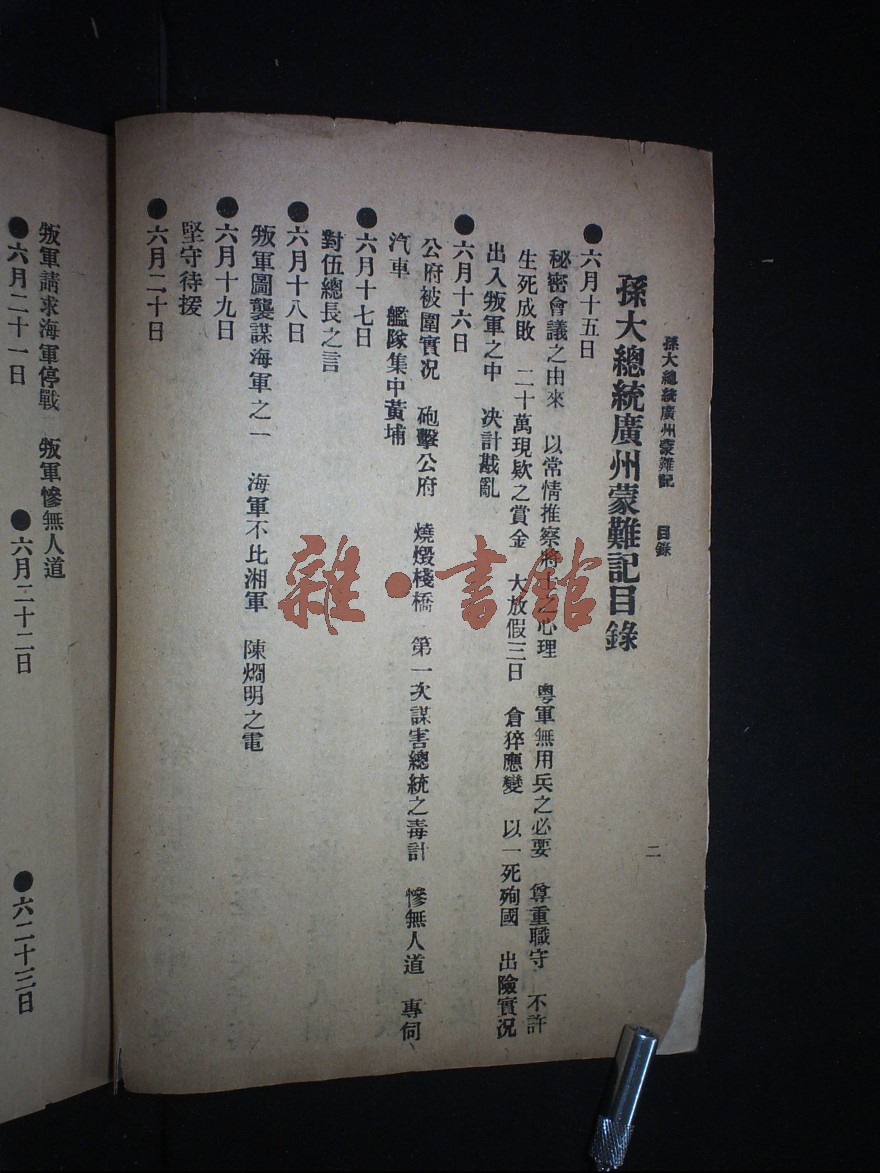 孫大總統廣州蒙難記 目錄
二
孫大總統廣州蒙難記目錄
●六月十五日
秘密會議之由來 以常情推察將士之心理 粵軍無用兵之必要 尊重職守 不許
生死成敗 二十萬現欵之賞金 大放假三日 倉猝應變 以一死殉國 出險實況
出入叛軍之中 決計戡亂
●六月十六日
公府被圍實況 砲擊公府 燒燬棧橋 第一次謀害總統之毒計 慘無人道 專伺
汽車 艦隊集中黃埔
●六月十七日
對伍總長之言
●六月十八日
叛軍圖襲謀海軍之一 海軍不比湘軍 陳烱明之電
●六月十九日
堅守待援
●六月二十日
叛軍請求海軍停戰 叛軍慘無人道
●六月二十一日 ●六月二十二日 ●六二十三日
雜·書館